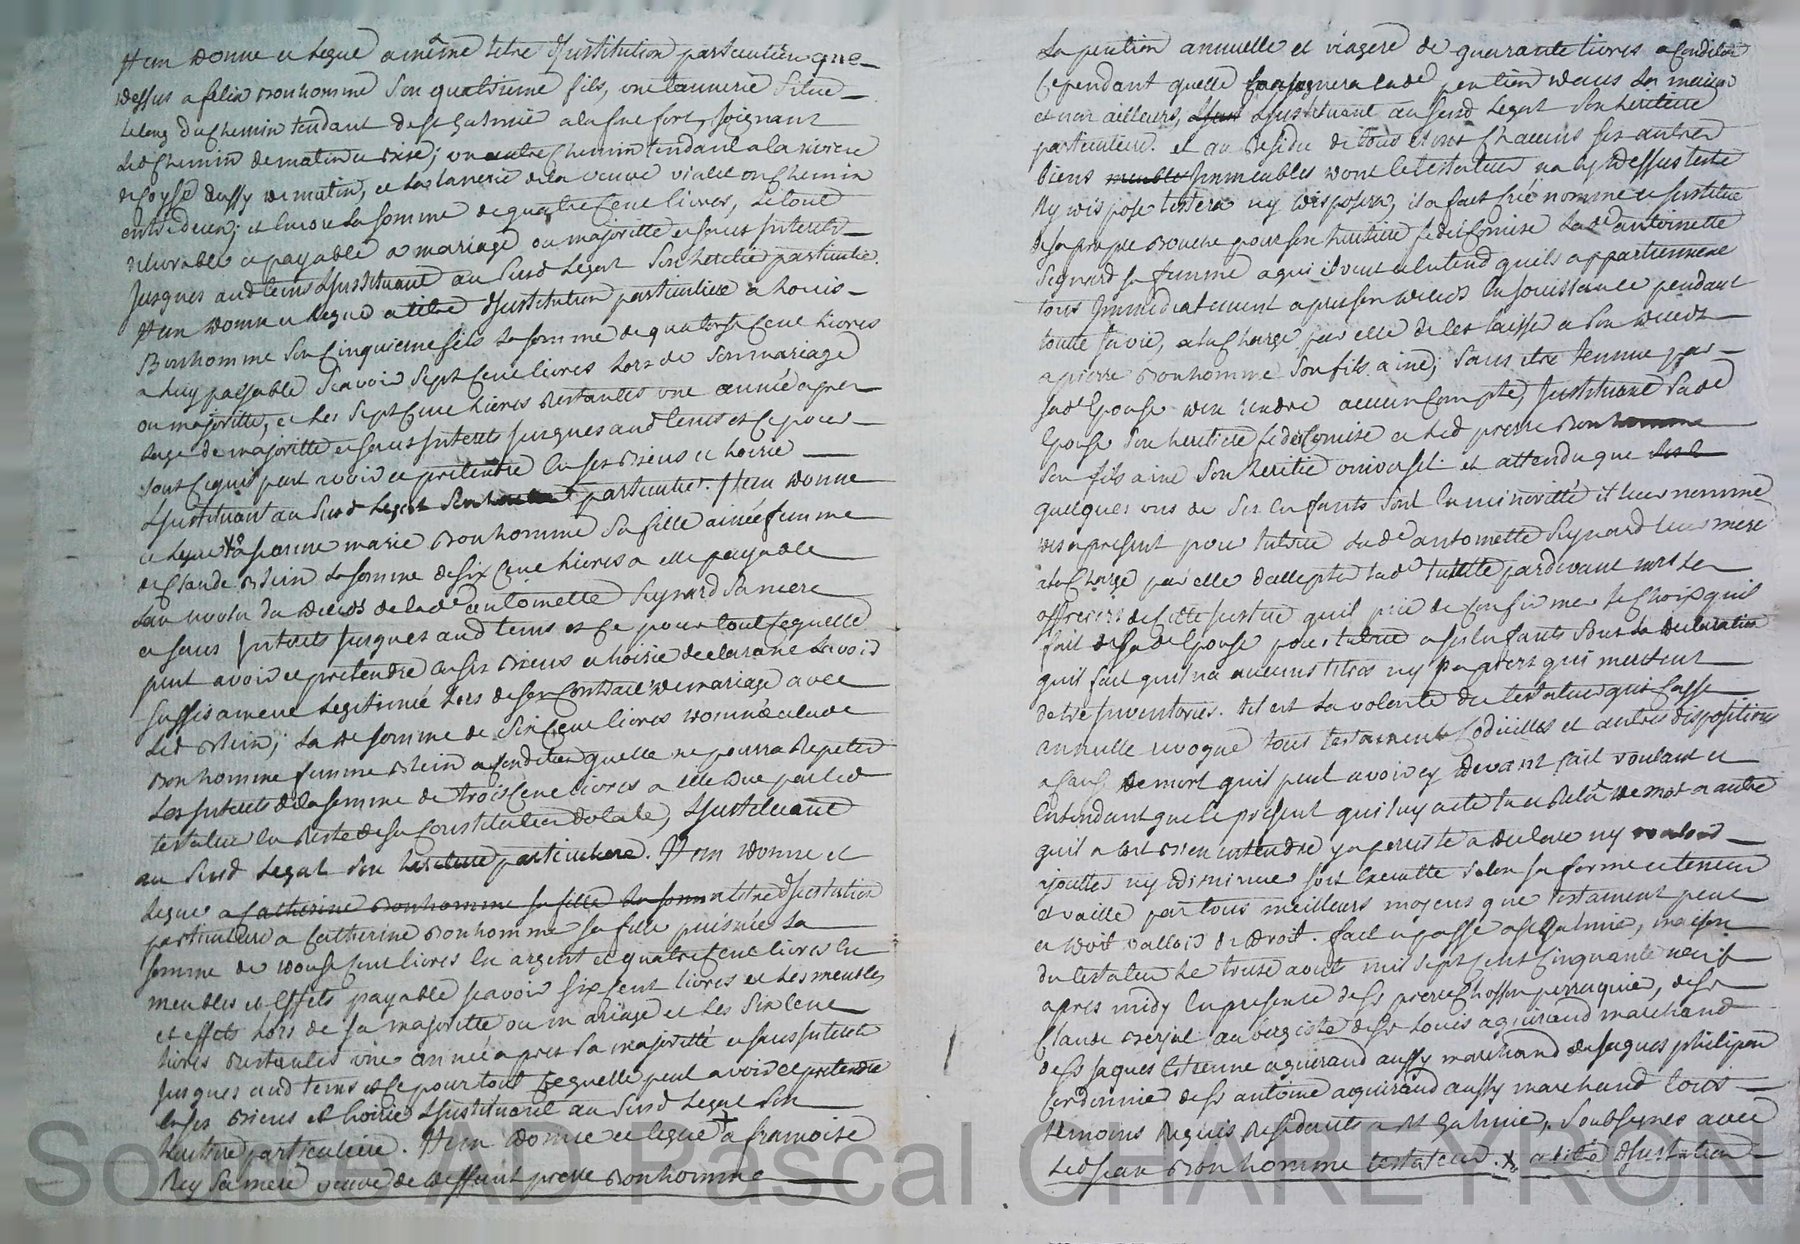 Item donne et legue a même titre d'institution particuliere que
dessus a felix Bonhomme son quatrieme fils, une tannerie située
le long du chemin tendant de st galmier a la fon fort, joignant
led chemin de matin et bise; un autre chemin tendant a la riviere
de Coyse aussy de matin, et la tannerie de la veuve vialet un chemin
entre deux; et encore la somme de quatre cent livres, le tout
delivrable et payable a mariage ou majorité et sans interets
jusques aud tems l'instituant au susd legat son heritier particulier.
Item donne et legue a titre d'institution particuliere a Louis
Bonhomme son cinquieme fils la somme de quatorze cent livres
a luy payable scavoir sept cent livres lors de son mariage
ou majorité, et les sept cent livres restantes une année apres
l'age de majorité et sans interets jusques aud tems et ce pour
tout ce qu'il peut avoir et pretendre en ses biens et hoirie
l'instituant au susd legat son heritier particulier. Item donne
et legue + a jeanne marie Bonhomme sa fille ainée femme
de Claude Blein la somme de six cent livres a elle payable
lan revolu du deceds de lade antoinette Synard sa mere
et sans interets jusques aud tems et ce pour tout ce quelle
peut avoir et pretendre en ses biens et hoirie declarant lavoir
suffisament legitimée lors de son contract de mariage avec
led Blein; la de somme de six cent livres donnée a lade
Bonhomme femme Blein a condition quelle ne pourra repeter
les interets de la somme de trois cent livres a elle due par led
testateur en reste de sa constitution dotale, l'instituant
au susd legat son heritiere particuliere. Item donne et
legue a Catherine Bonhomme sa fille la somme a titre d'institution
particuliere a Catherine Bonhomme sa fille puisnée la
somme de douze cent livres en argent et quatre cent livres en
meubles et effets payable scavoir six cent livres et les meubles
et effets lors de sa majorité ou mariage et les six cent
livres restantes une année apres sa majorité et sans interets
jusques aud tems et ce pour tout ce quelle peut avoir et pretendre
en ses biens et hoirie l'instituant au susd legat son
heritiere particuliere. Item donne et legue + a francoise
Rey sa mere veuve de deffunt pierre Bonhomme
La pention annuelle et viagere de quarante livres a condition
cependant quelle consomera lade pention dans sa maison
et non ailleurs, l'instituant au susd legat son heritiere
particuliere. et au residu de tous et uns chacuns ses autres
biens meubles immeubles dont le testateur na cy dessus testé
ny disposé testera ny disposera, il a fait créé nommé et institué
de sa propre bouche pour son heritiere fideicomise lade antoinette
Seynard sa femme a qui il veut et entend quils appartiennent
tous immediatement apres son deceds en jouissance pendant
toutte sa vie, a la charge par elle de les laisser a son deceds
a pierre Bonhomme son fils ainé; sans etre tenue par
sade epouse den rendre aucun compte, instituant sade
epouse son heritiere fideicomise et led pierre Bonhomme
son fils ainé son heritier universel. et attendu que
quelques uns de ses enfants sont en minorité il leur nomme
des a present pour tutrice lade antoinette Seynard leur mere
a la charge par elle daccepter lade tutelle pardevant mrs les
officiers de cette justice quil prie de confirmer le choix quil
fait de sade epouse pour tutrice a ses enfants sous la declaration
quil fait quil na aucuns titres ny papiers qui meritent
detre inventoriés. tel est la volonté du testateur qui casse
annulle revoque tous testament codicilles et autres dispositions
a cause de mort quil peut avoir cy devant fait voulant et
entendant que le present qui luy a eté lu et relu de mot a autre
quil a dit bien entendre y a persisté a declaré ny vouloir
ajoutter ny diminuer soit executté selon sa forme et teneur
et vaille par tous meilleurs moyens que testament peut
et doit valloir de droit. fait et passé a st galmier, maison
du testateur le treize aout mil sept cent cinquante neuf
apres midy en presence de sr pierre Chosson perruquier, de sr
Claude Bersal aubergiste de sr Louis aguiraud marchand
de sr jaques Etienne aguiraud aussy marchand de jaques philipon
cordonnier de sr antoine aguiraud aussy marchand tous
temoins requis residants a st galmier, soubsignés avec
led jean Bonhomme testateur. x a titre d'institution
Source AD Pascal CHAREYRON